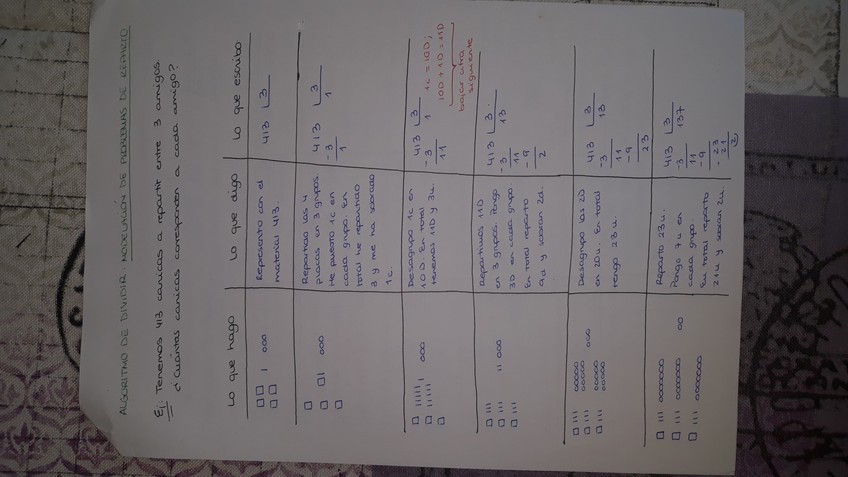 ALGORITMO DE DIVIDIR: MODELACIÓN DE PROBLEMAS DE REPARTO
Ej Tenemos 413 canicas a repartir entre 3 amigos.
¿Cuántas canicas corresponden a cada amigo?
Lo que hago
Lo que digo
Lo que escribo
Represento con el
material 413.
413 3
Repartido las 4
placas en 3 grupos.
He puesto 1c en
cada grupo. En
total he repartido
3 y me ha sobrado
1c.
413 3
-3 1
1
Desagrupo 1c en
10D. En total
tenemos 11D y 3u.
413 3
-3 1
11
1c = 10D;
10D + 1D = 11D
bajar cifra
siguiente
Repartimos 11D
en 3 grupos. Pongo
3D en cada grupo
En total reparto
9d y sobran 2d.
413 3
-3 13
11
-9
2
Desagrupo las 2D
en 20u. En total
tengo 23u.
413 3
-3 13
11
-9
23
Reparto 23u.
Pongo 7u en
cada grupo
En total reparto
21u y sobran 2u.
413 3
-3 137
11
-9
-23
21
2